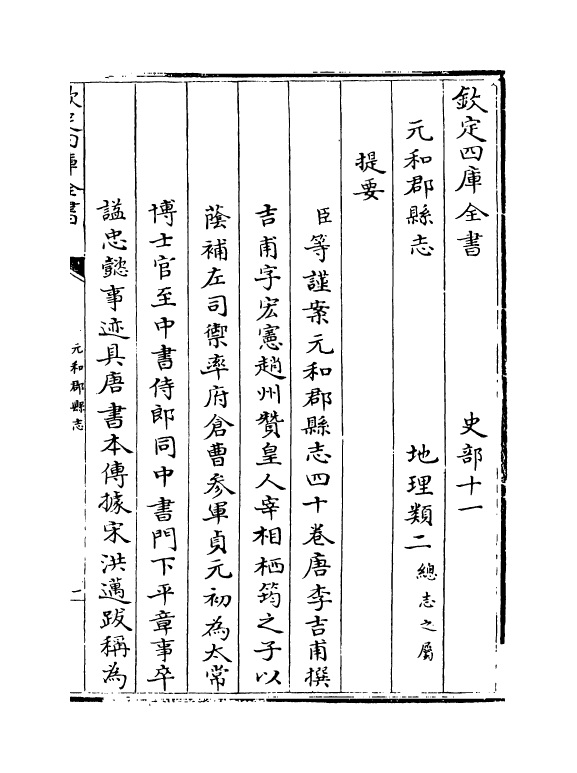 欽定四庫全書 史部十一
元和郡縣志 地理類二總志之屬
提要
臣等謹案元和郡縣志四十卷唐李吉甫撰
吉甫字宏憲趙州贊皇人宰相栖筠之子以
蔭補左司禦率府倉曹參軍貞元初為太常
博士官至中書侍郎同中書門下平章事卒
諡忠懿事迹具唐書本傳據宋洪邁跋稱為
欽定四庫全書
元和郡縣志